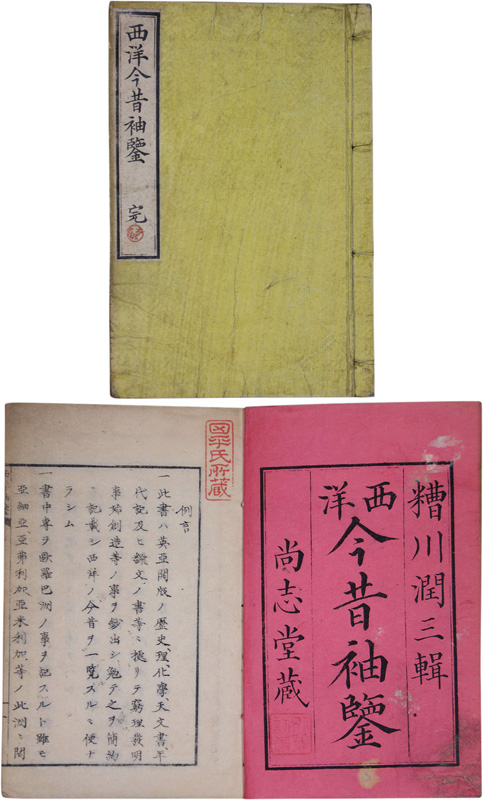 西洋今昔袖鑒
完
糟川潤三輯
西洋今昔袖鑒
尚志堂蔵
例言
一此書ハ英亜開版ノ歴史理化學天文書年
代記及ヒ譯文ノ書等ニ據リテ窮理發明
事始創造等ノ事ヲ出シ勉テ之ヲ簡約
記載シ西洋ノ今昔ヲ一覧スルニ便ナ
ラシム
一書中専ラ歐羅巴洲ノ事ヲ記スルト雖モ
亞細亞亞弗利加亞米利加等ノ此洲ニ関